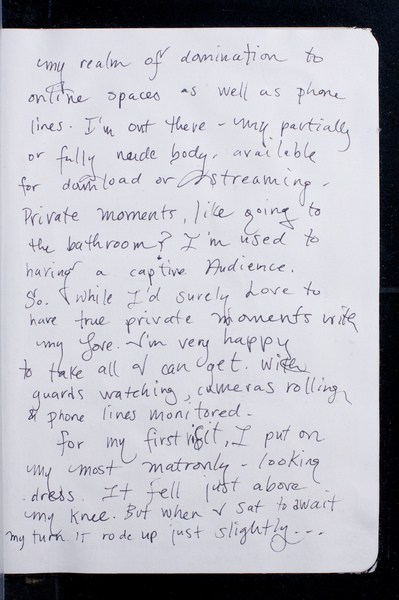 my realm of domination to
online spaces as well as phone
lines. I'm out there - my partially
or fully nude body. available
for download or streaming.
Private moments, like going to
the bathroom? I'm used to
having a captive Audience.
So. while I'd surely Love to
have true private moments with
my Love. I'm very happy
to take all I can get. with
guards watching, cameras rolling
& phone lines monitored.
for my first visit, I put on
my most matronly-looking
dress. It fell just above
my knee. But when I sat to await
my turn it rode up just slightly...